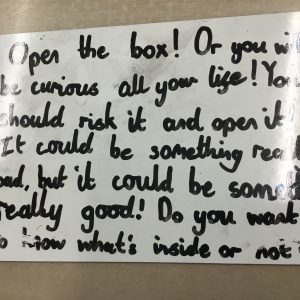 Open the box! Or you wi
be curious all your life! You
should risk it and open it!
It could be something rea
bad, but it could be somet
really good! Do you want
to know what's inside or not